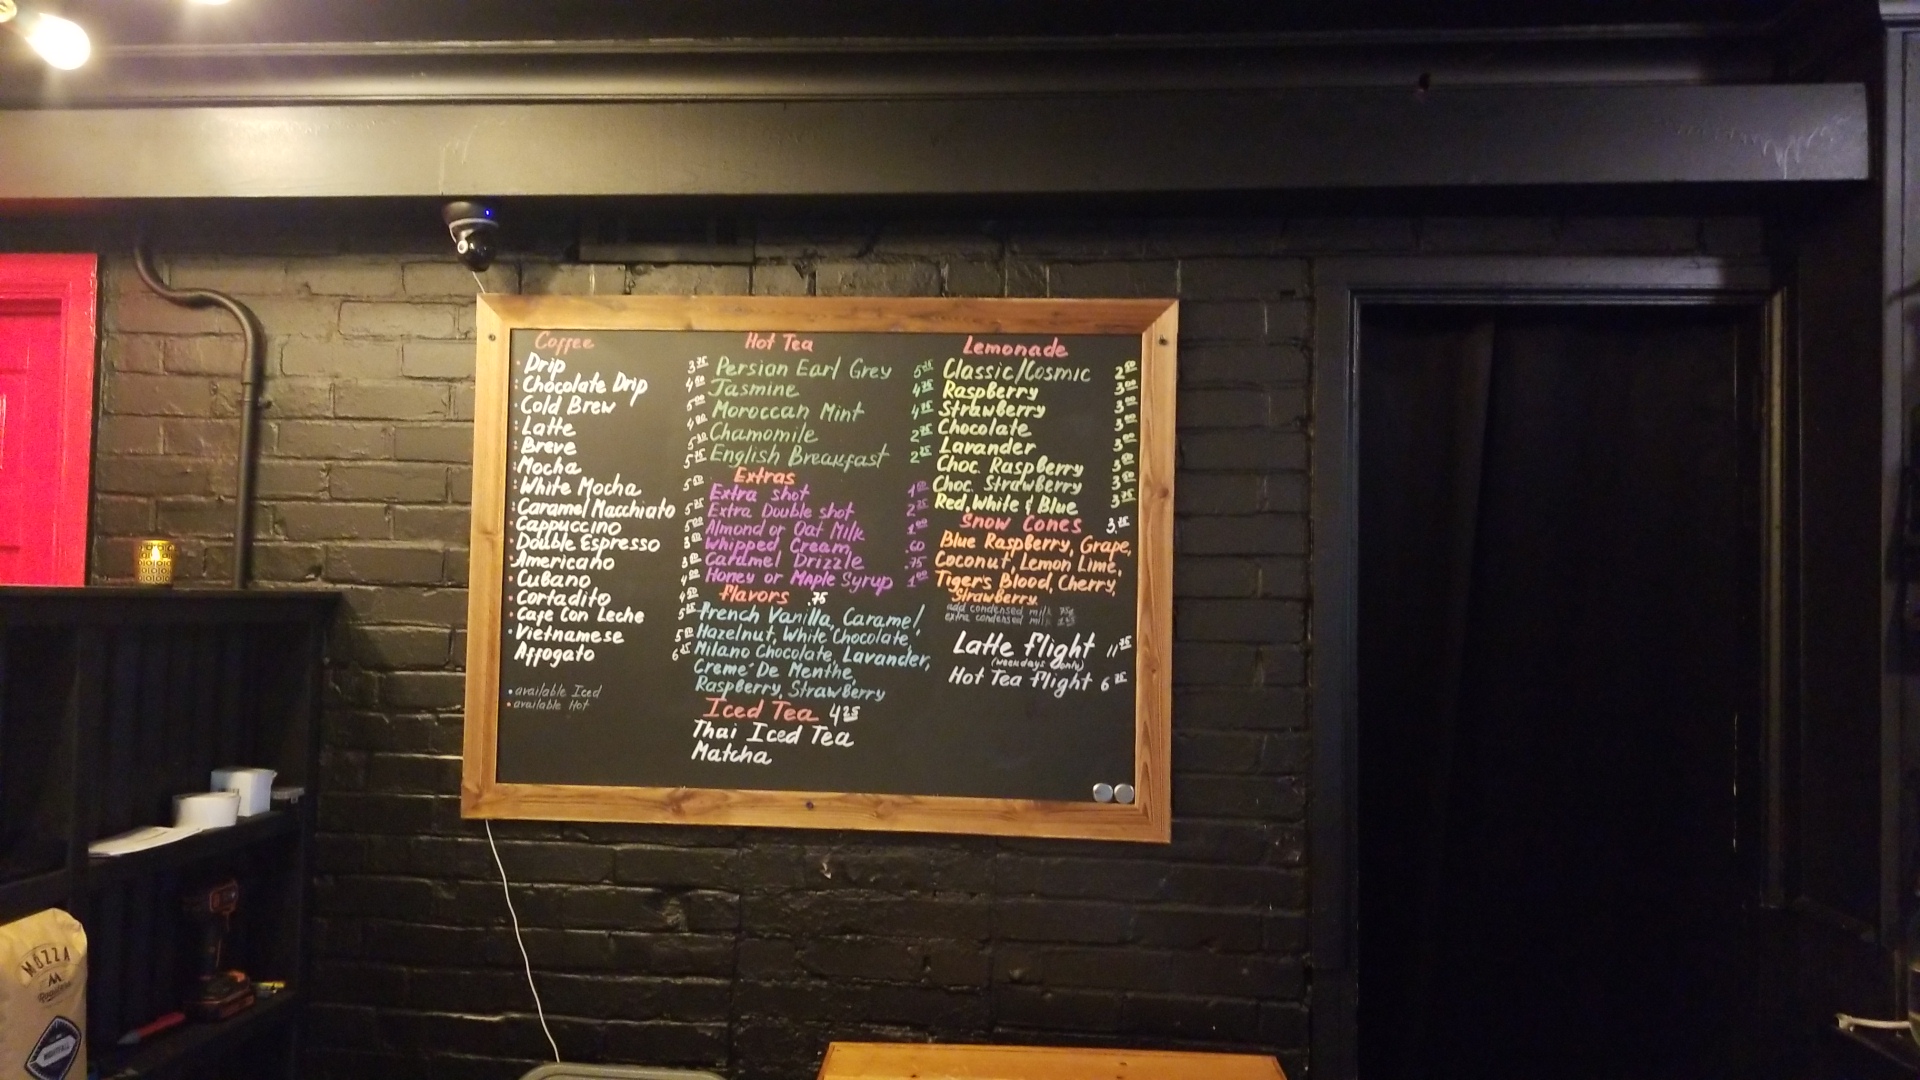 Coffee
Drip 3.75
Chocolate Drip 4.50
Cold Brew 5.00
Latte
Breve
Mocha
White Mocha
Caramel Macchiato
Cappuccino
Double Espresso
Americano
Cubano
Cortadito
Cafe Con Leche
Vietnamese
Affogato
available Iced
available Hot
Hot Tea
Persian Earl Grey
Jasmine 4.75
Moroccan Mint 4.75
Chamomile 2.75
English Breakfast 2.75
Extras
Extra shot
Extra Double shot
Almond or Oat Milk 1.00
Whipped Cream .60
Caramel Drizzle .75
Honey or Maple Syrup 1.00
flavors .75
French Vanilla, Caramel,
Hazelnut, White Chocolate,
Milano Chocolate, Lavander,
Creme De Menthe,
Raspberry, Strawberry
Iced Tea 4.25
Thai Iced Tea
Matcha
Lemonade
Classic/Cosmic 2.50
Raspberry 3.00
Strawberry 3.00
Chocolate 3.00
Lavander 3.00
Choc. Raspberry
Choc. Strawberry
Red, White & Blue 3.75
Snow Cones
Blue Raspberry, Grape,
Coconut, Lemon Lime,
Tigers Blood, Cherry,
Strawberry
add condensed milk
extra condensed milk
Latte flight 11.75
(weekdays only)
Hot Tea flight
MOZZA